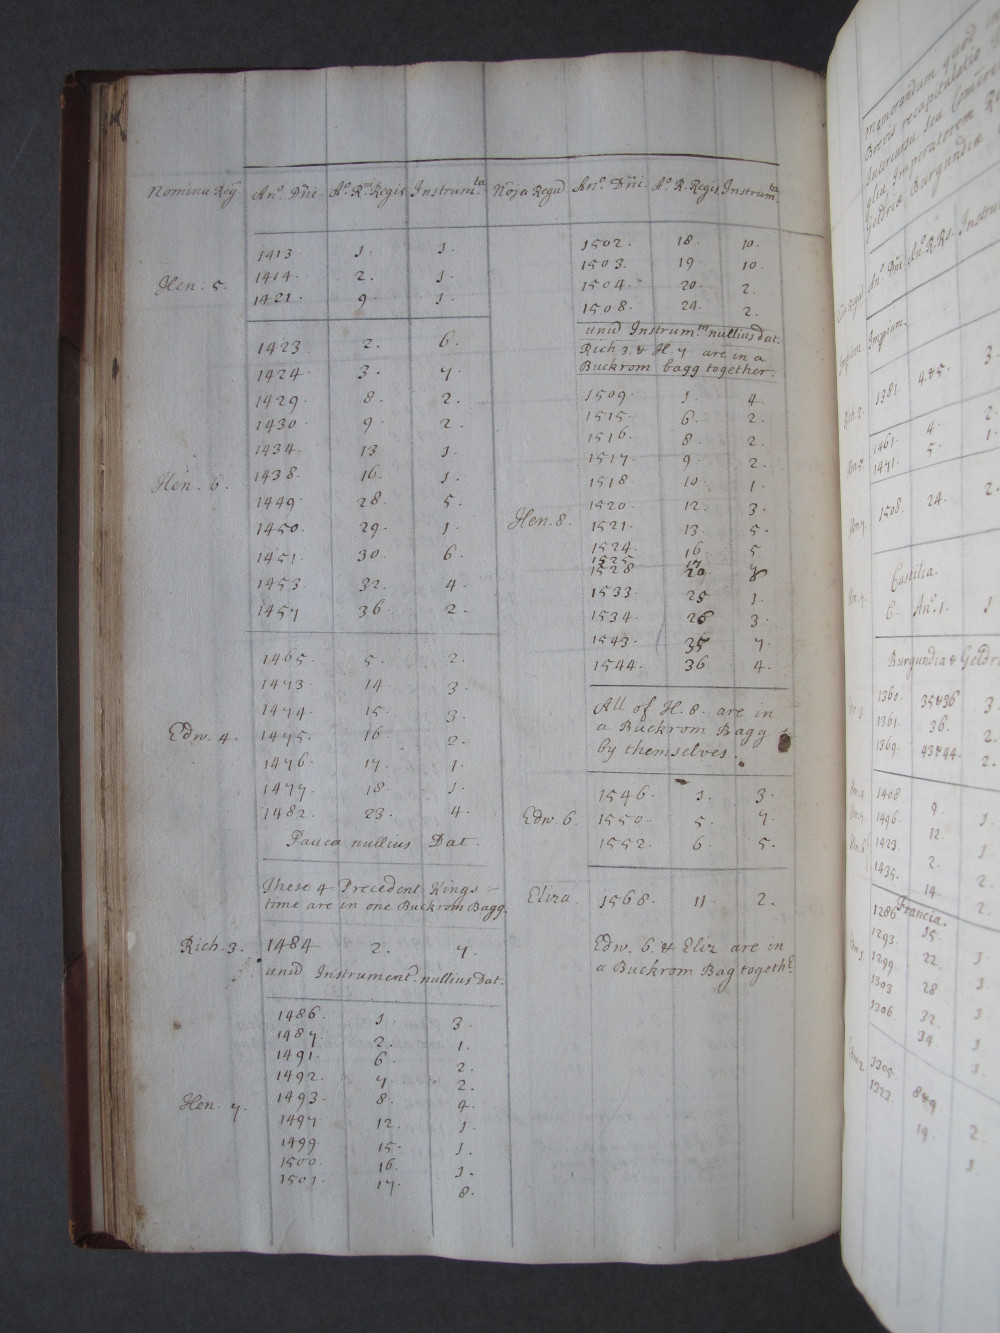 Nomina Reg̃ Anº. Dñi. Aº. R.ni Regis Instrum.ta
Hen: 5.
1413 1. 1.
1414. 2. 1.
1421. 9. 1.
Hen. 6.
1423 2. 6.
1424 3. 7.
1429 8. 2.
1430 9. 2.
1434. 13 1.
1438. 16. 1.
1449 28. 5.
1450. 29. 1.
1451. 30. 6.
1453. 32. 4.
1457 36. 2.
Edw. 4.
1465. 5. 2.
1473 14. 3.
1474. 15. 3.
1475. 16. 2.
1476. 17. 1.
1477. 18. 1.
1482. 23. 4.
Pauca nullius Dat.
These 4 Precedent Kings
time are in one Buckrom Bagg.
Rich. 3. 1484 2. 7.
unũ Instrument. nullius Dat.
Hen. 7.
1486. 1. 3.
1487 2. 1.
1491. 6. 2.
1492. 7. 2.
1493. 8. 4.
1497 12. 1.
1499 15. 1.
1500. 16. 1.
1501. 17. 8.
Nõĩa Regũ Anº. Dñi. Aº. R. Regis Instrum.ta
1502. 18. 10.
1503. 19. 10.
1504. 20. 2.
1508. 24. 2.
unũ Instrum.m nullius dat.
Rich 3. & H. 7 are in a
Buckrom bagg together.
Hen. 8.
1509. 1. 4.
1515. 6. 2.
1516. 8. 2.
1517 9 2.
1518 10. 1.
1520. 12. 3.
1521. 13. 5.
1524. 16. 5.
1525 17
1528 20
1533. 25 1.
1534. 26 3.
1543. 35 7.
1544. 36 4.
All of H. 8. are in
a Buckrom Bagg
by themselves.
Edw. 6.
1546. 1. 3.
1550. 5. 7.
1552. 6. 5.
Eliza. 1568. 11. 2.
Edw. 6 & Eliz are in
a Buckrom Bag togeth.r
Memorandum quod
Brevis recapitulatio
Imperatorem
Geldriæ Burgundiæ
Anº. Dñi Anº. R. Rs. Instru
Impium.
1381. 4.&5. 3
1461. 4. 2.
1471. 5. 1.
1508. 24. 2.
Castilia.
Anº. 1. 1
Burgundia & Geldr
1360. 35&36 3.
1361. 36. 2.
1369. 43&44. 2.
1408. 9. 1.
1496. 12. 1.
1423. 2. 2.
1435. 14. 2.
Francia.
1286 15
1293. 22. 1.
1299 28 1
1303. 32. 1.
1306. 34. 1
1305. 8&9. 2.
1323. 19. 1.